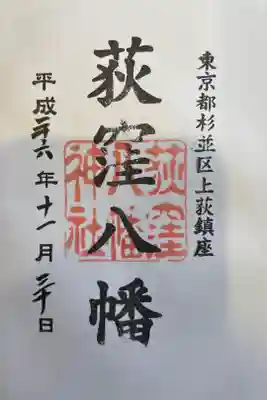 東京都杉並区上荻鎮座
荻窪八幡
荻窪
八幡
神社
平成二十六年十一月三十日